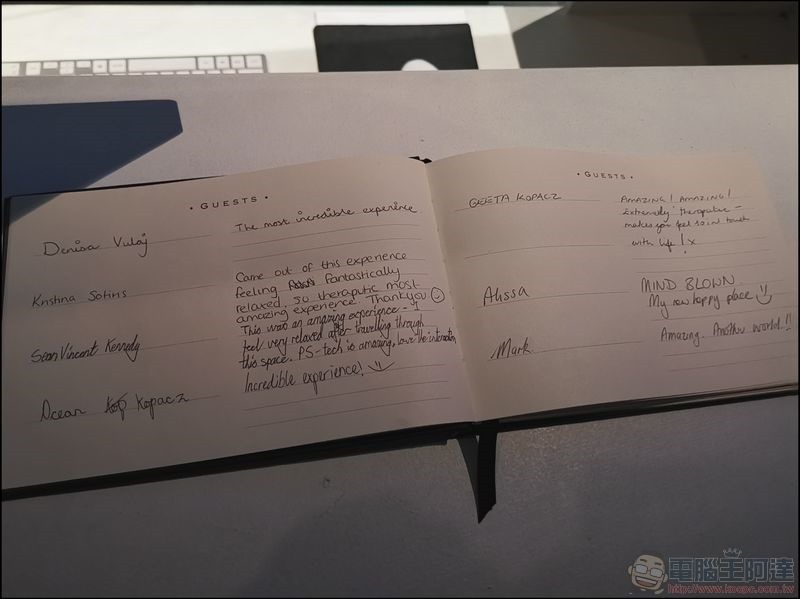 • GUESTS •
Denisa Vuloj
The most incredible experience
Krishna Sotiris
Came out of this experience
feeling fantastically
relaxed, so theraputic most
amazing experience. Thankyou ☺
Sean Vincent Kennedy
This was an amazing experience - I
feel very relaxed after travelling through
this space. PS - tech is amazing, love the interaction
Ocean Kopacz
Incredible experience!
• GUESTS •
GEETA KOPACZ
AMAZING! AMAZING!
Extremely therapeutic -
makes you feel so in touch
with life! x
Alissa
MIND BLOWN
My new happy place
Mark
Amazing. Another world!!
電腦王阿達
http://www.kocpc.com.tw